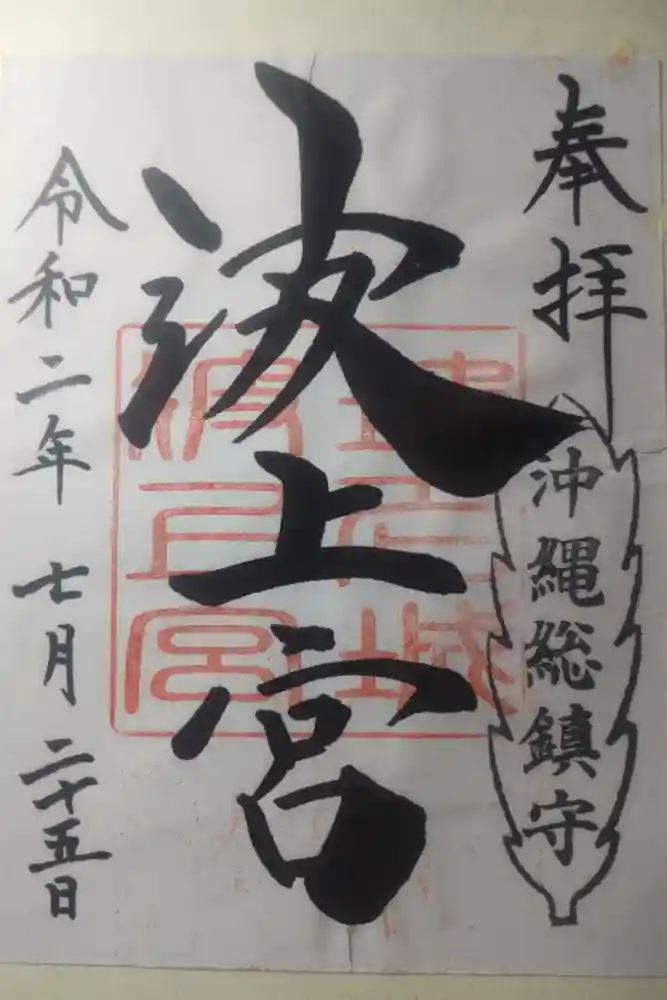 奉拝
沖縄総鎮守
波上宮
令和二年 七月 二十五日